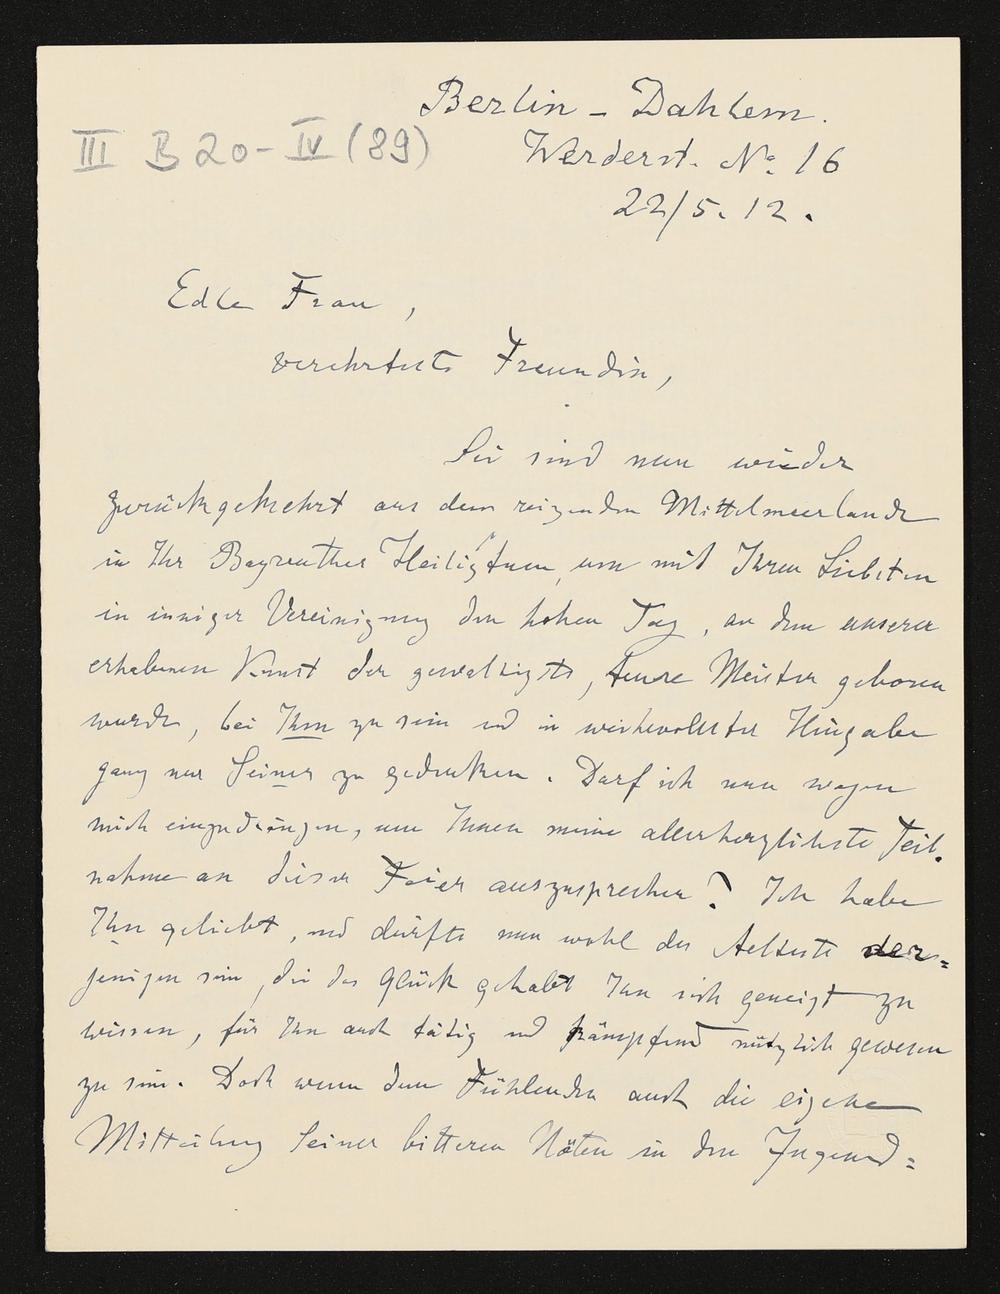 Berlin - Dahlem.
III B 20 - IV (89)
Werderst. No. 16
22/5. 12.
Edle Frau,
verehrteste Freundin,
Sie sind nun wieder
zurückgekehrt aus dem reizenden Mittelmeerlande
in Ihr Bayreuther Heiligtum, um mit Ihren Liebsten
in inniger Vereinigung den hohen Tag, an dem unserer
erhabenen Kunst der gewaltigste, teure Meister geboren
wurde, bei Ihm zu sein und in weihevollster Hingabe
ganz nur Seiner zu gedenken. Darf ich nun wagen
mich einzudrängen, um Ihnen meine allerherzlichste Teil-
nahme an dieser Feier auszusprechen? Ich habe
Ihn geliebt, und dürfte nun wohl der Aelteste der=
jenigen sein, die das Glück gehabt Ihn sich geneigt zu
wissen, für Ihn auch tätig und kämpfend nützlich gewesen
zu sein. Doch wenn dem Fühlenden auch die eigene
Mitteilung Seiner bitteren Nöten in den Jugend=